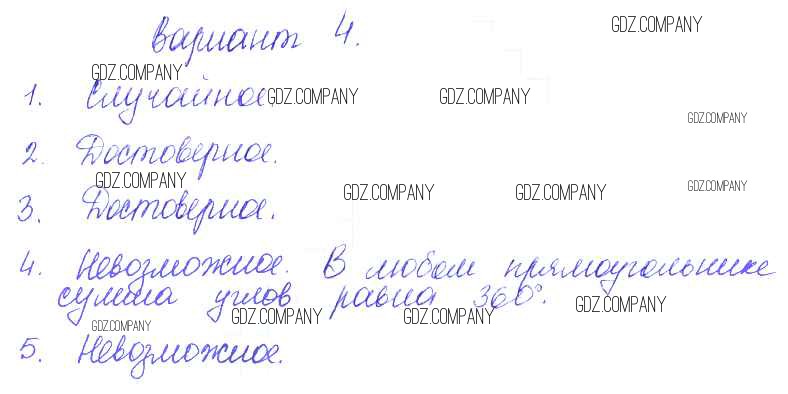 Вариант 4.
GDZ.COMPANY
GDZ.COMPANY
1. Случайное.
GDZ.COMPANY
GDZ.COMPANY
GDZ.COMPANY
2. Достоверное.
GDZ.COMPANY
GDZ.COMPANY
GDZ.COMPANY
GDZ.COMPANY
3. Достоверное.
4. Невозможное. В любом прямоугольнике
сумма углов равна 360°.
GDZ.COMPANY
GDZ.COMPANY
GDZ.COMPANY
GDZ.COMPANY
5. Невозможное.